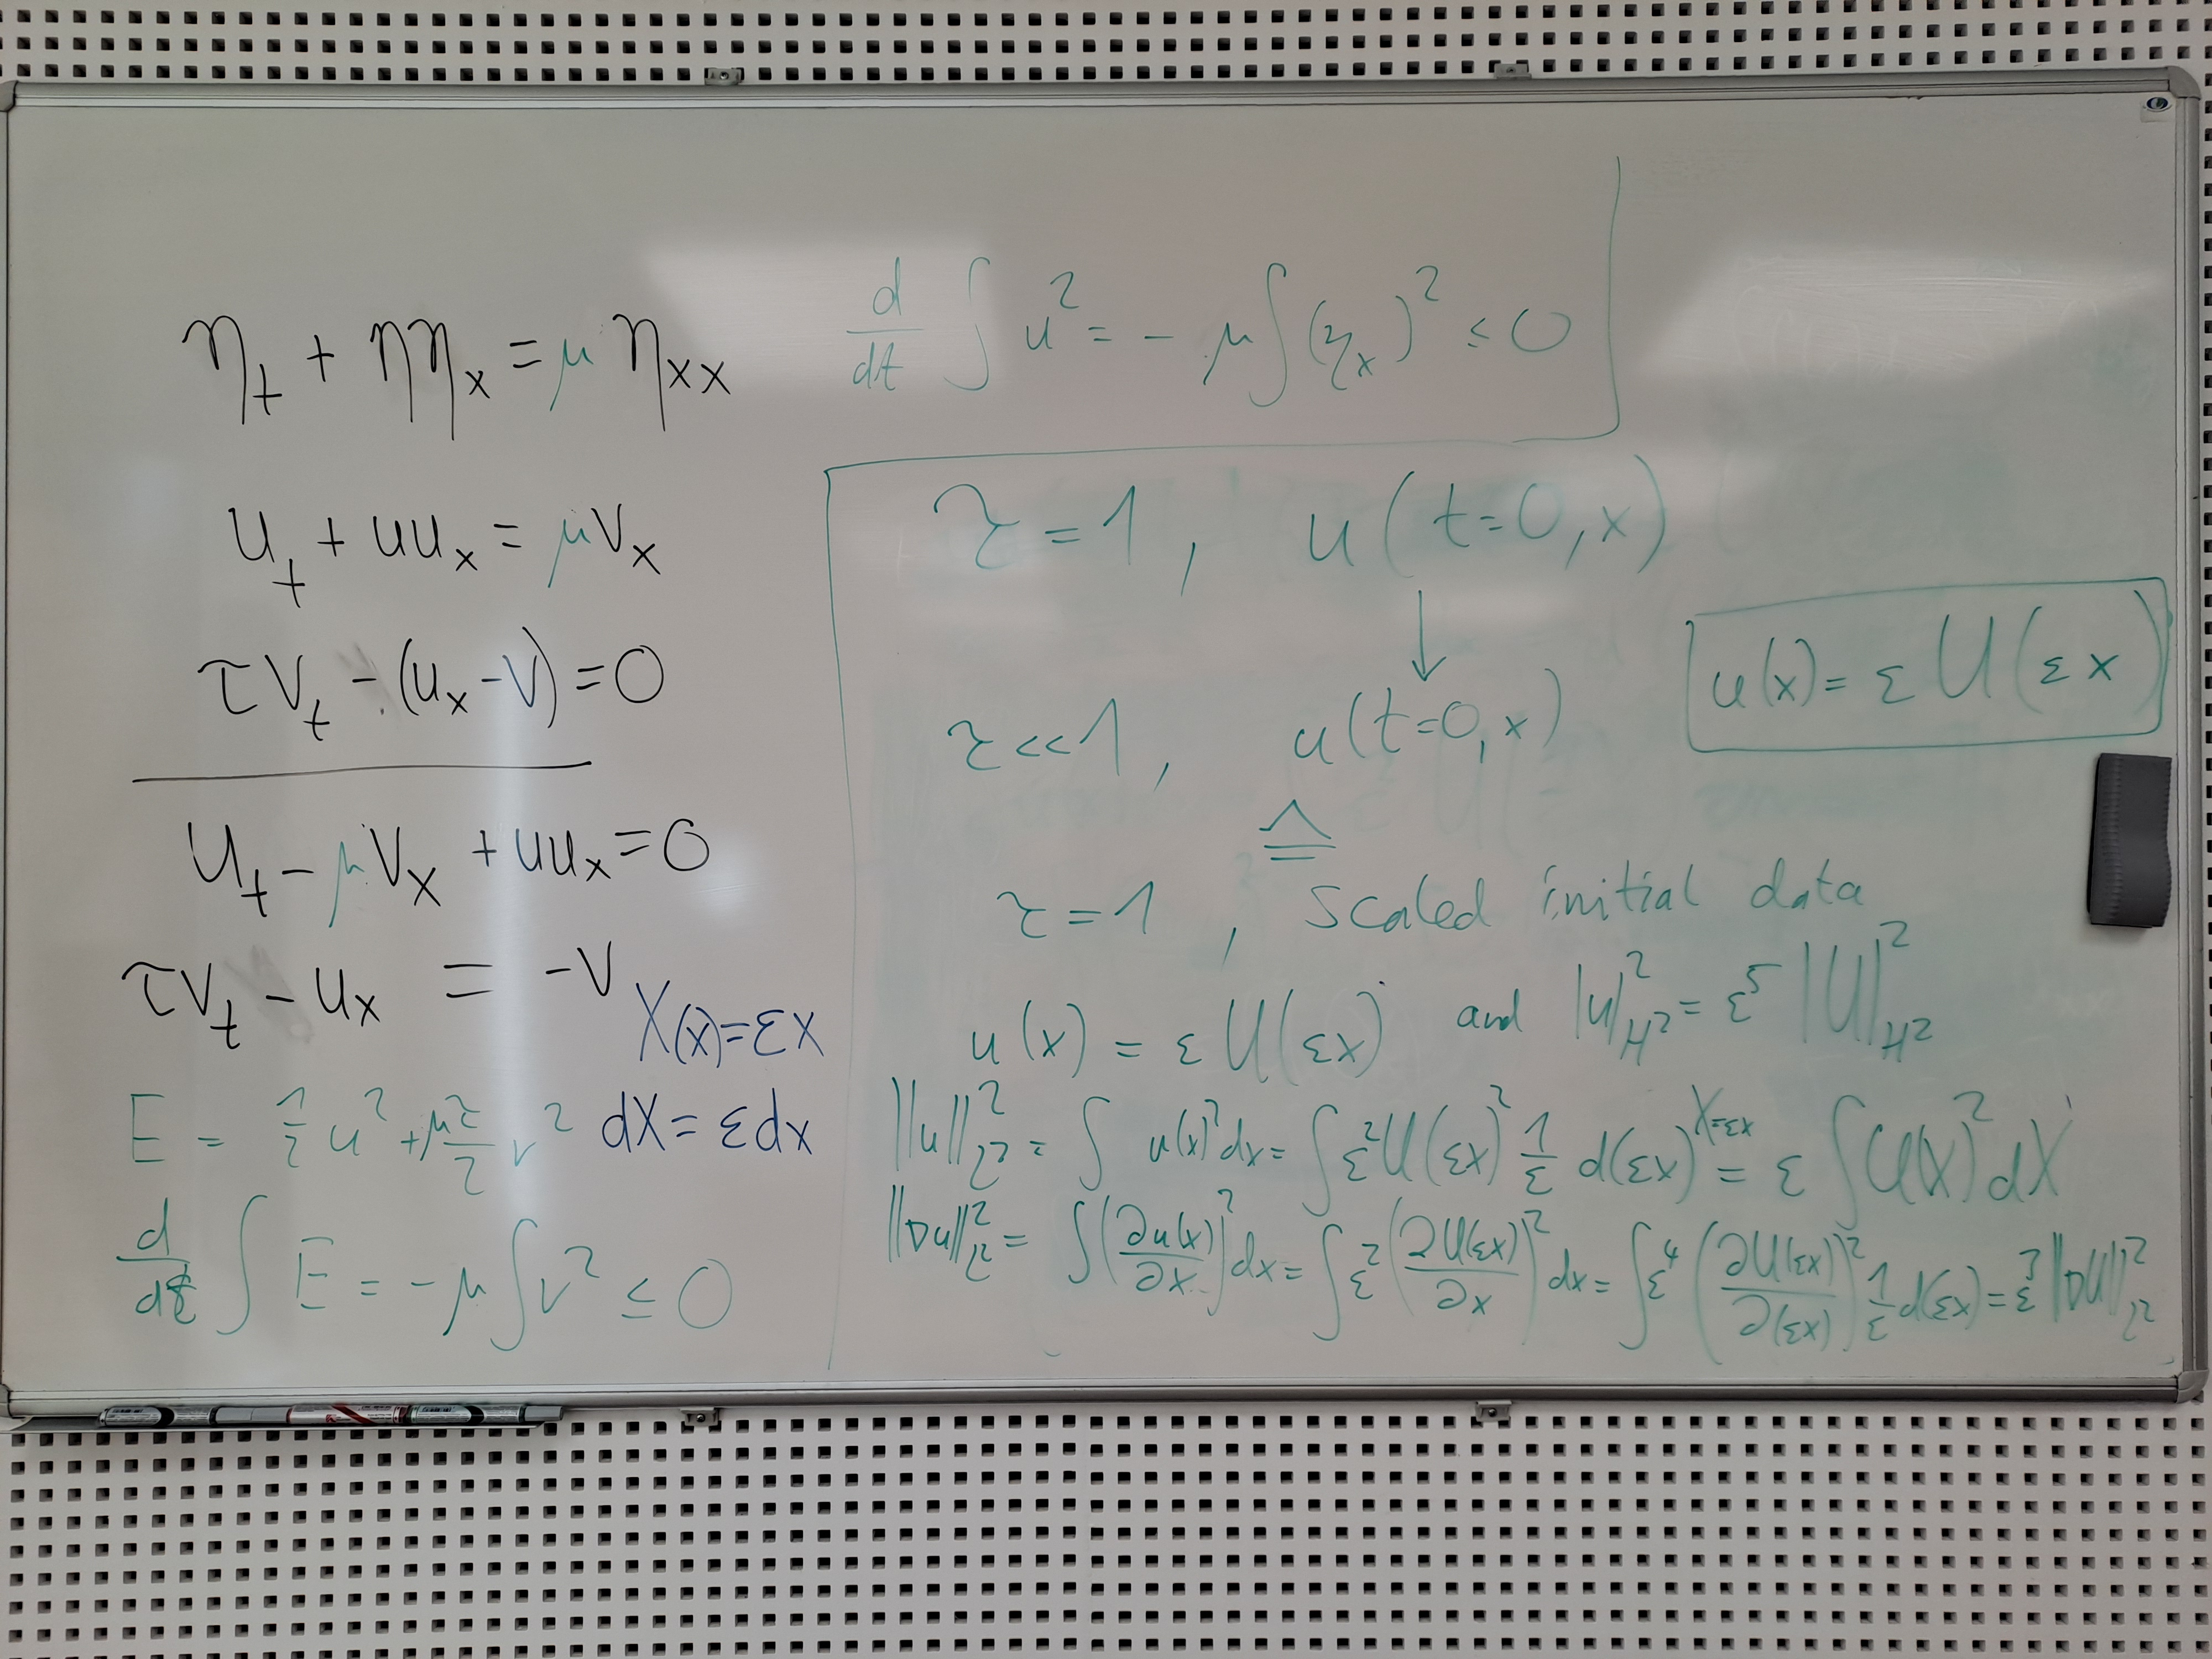 η_t + ηη_x = μ η_xx
u_t + uu_x = μ v_x
τ v_t - (u_x - v) = 0
u_t - μ v_x + uu_x = 0
τ v_t - u_x = -v
X(x) = εx
E = 1/2 u² + μτ/2 v²
dX = εdx
d/dt ∫ E = -μ ∫ v² ≤ 0
d/dt ∫ u² = - μ ∫ (η_x)² ≤ 0
τ = 1 , u(t=0,x)
↓
τ << 1 , u(t=0,x)
u(x) = ε U(εx)
≙
τ = 1 , scaled initial data
u(x) = ε U(εx) and |u|²_H² = ε⁵ |U|²_H²
||u||²_L² = ∫ u(x)² dx = ∫ ε² U(εx)² 1/ε d(εx) X=εx = ε ∫ U(X)² dX
||Du||²_L² = ∫ (∂u(x)/∂x)² dx = ∫ ε² (∂U(εx)/∂x)² dx = ∫ ε⁴ (∂U(εx)/∂(εx))² 1/ε d(εx) = ε³ ||DU||²_L²